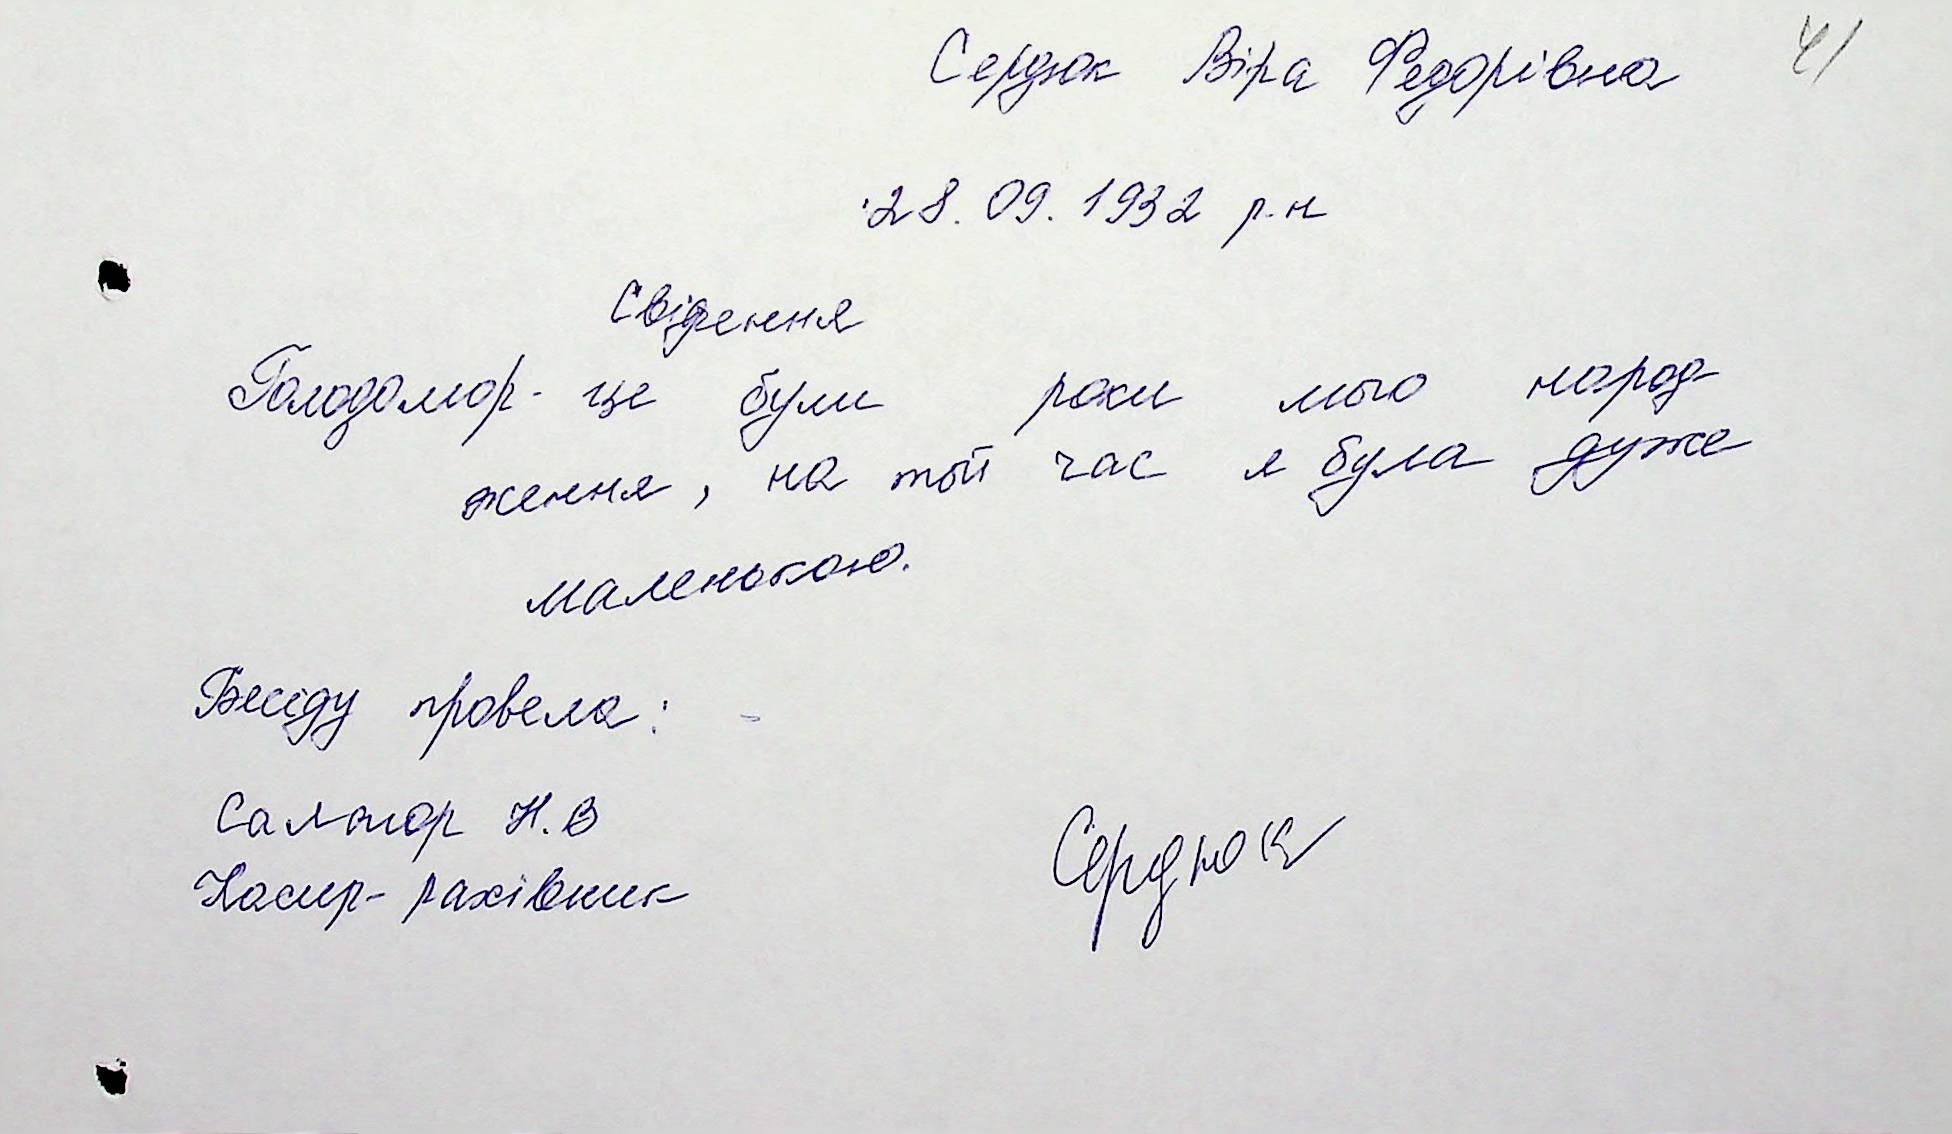 Сердюк Віра Федорівна 41
28.09.1932 р.н
Свідення
Голодомор - це були роки мого народ-
ження, на той час я була дуже
маленькою.
Бесіду провела:
Салогор Н.В
Касир-рахівник
Сердюк